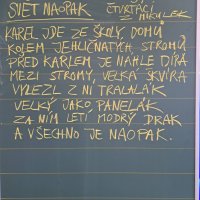 SVĚT NAOPAK ČTVRŤÁCI
Z MIKULEK
KAREL JDE ZE ŠKOLY, DOMŮ
KOLEM JEHLIČNATÝCH STROMŮ
PŘED KARLEM JE NÁHLE DÍRA
MEZI STROMY, VELKÁ ŠKVÍRA
VYLEZL Z NÍ TRALALÁK
VELKÝ JAKO PANELÁK
ZA NÍM LETÍ MODRÝ DRAK
A VŠECHNO JE NAOPAK.